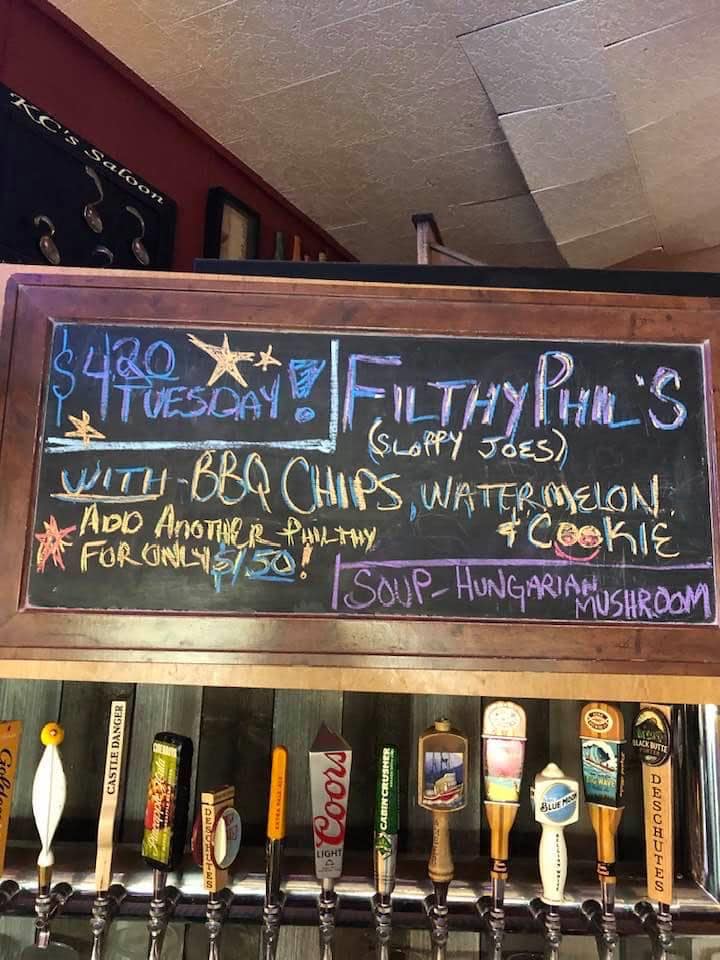 KC's Saloon
$420
TUESDAY!
FILTHY PHIL'S
(SLOPPY JOES)
WITH - BBQ CHIPS, WATERMELON
& COOKIE
ADD ANOTHER PHILTHY
FOR ONLY $1.50!
SOUP - HUNGARIAN
MUSHROOM
CASTLE DANGER
DESCHUTES
Coors
LIGHT
CABIN CRUSHER
BLUE MOON
BIG WAVE
BLACK BUTTE
PORTER
DESCHUTES